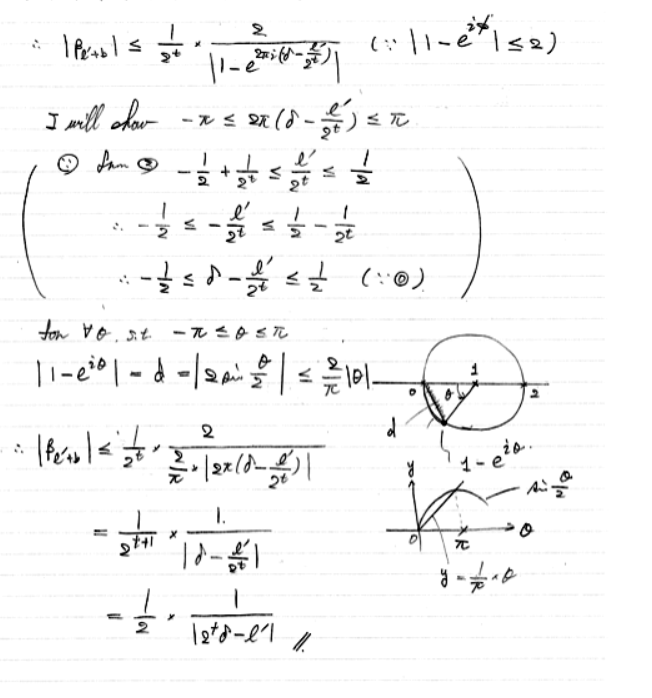 ∴ |β_{ℓ'+b}| ≤ \frac{1}{2^t} × \frac{2}{|1-e^{2πi(δ-\frac{ℓ'}{2^t})}|} (∵ |1-e^{iϕ}| ≤ 2)
I will show -π ≤ 2π(δ-\frac{ℓ'}{2^t}) ≤ π
∵ from ② -\frac{1}{2}+\frac{1}{2^t} ≤ \frac{ℓ'}{2^t} ≤ \frac{1}{2}
∴ -\frac{1}{2} ≤ -\frac{ℓ'}{2^t} ≤ \frac{1}{2}-\frac{1}{2^t}
∴ -\frac{1}{2} ≤ δ-\frac{ℓ'}{2^t} ≤ \frac{1}{2} (∵⓪)
for ∀θ, s.t. -π ≤ θ ≤ π
|1-e^{iθ}| = d = |2 sin \frac{θ}{2}| ≤ \frac{2}{π}|θ|
0 θ 1 2
d
1-e^{iθ}
∴ |β_{ℓ'+b}| ≤ \frac{1}{2^t} × \frac{2}{\frac{2}{π}×|2π(δ-\frac{ℓ'}{2^t})|}
y
sin \frac{θ}{2}
0 π θ
y = \frac{1}{π}×θ
= \frac{1}{2^{t+1}} × \frac{1.}{|δ-\frac{ℓ'}{2^t}|}
= \frac{1}{2} × \frac{1}{|2^tδ-ℓ'|} //.